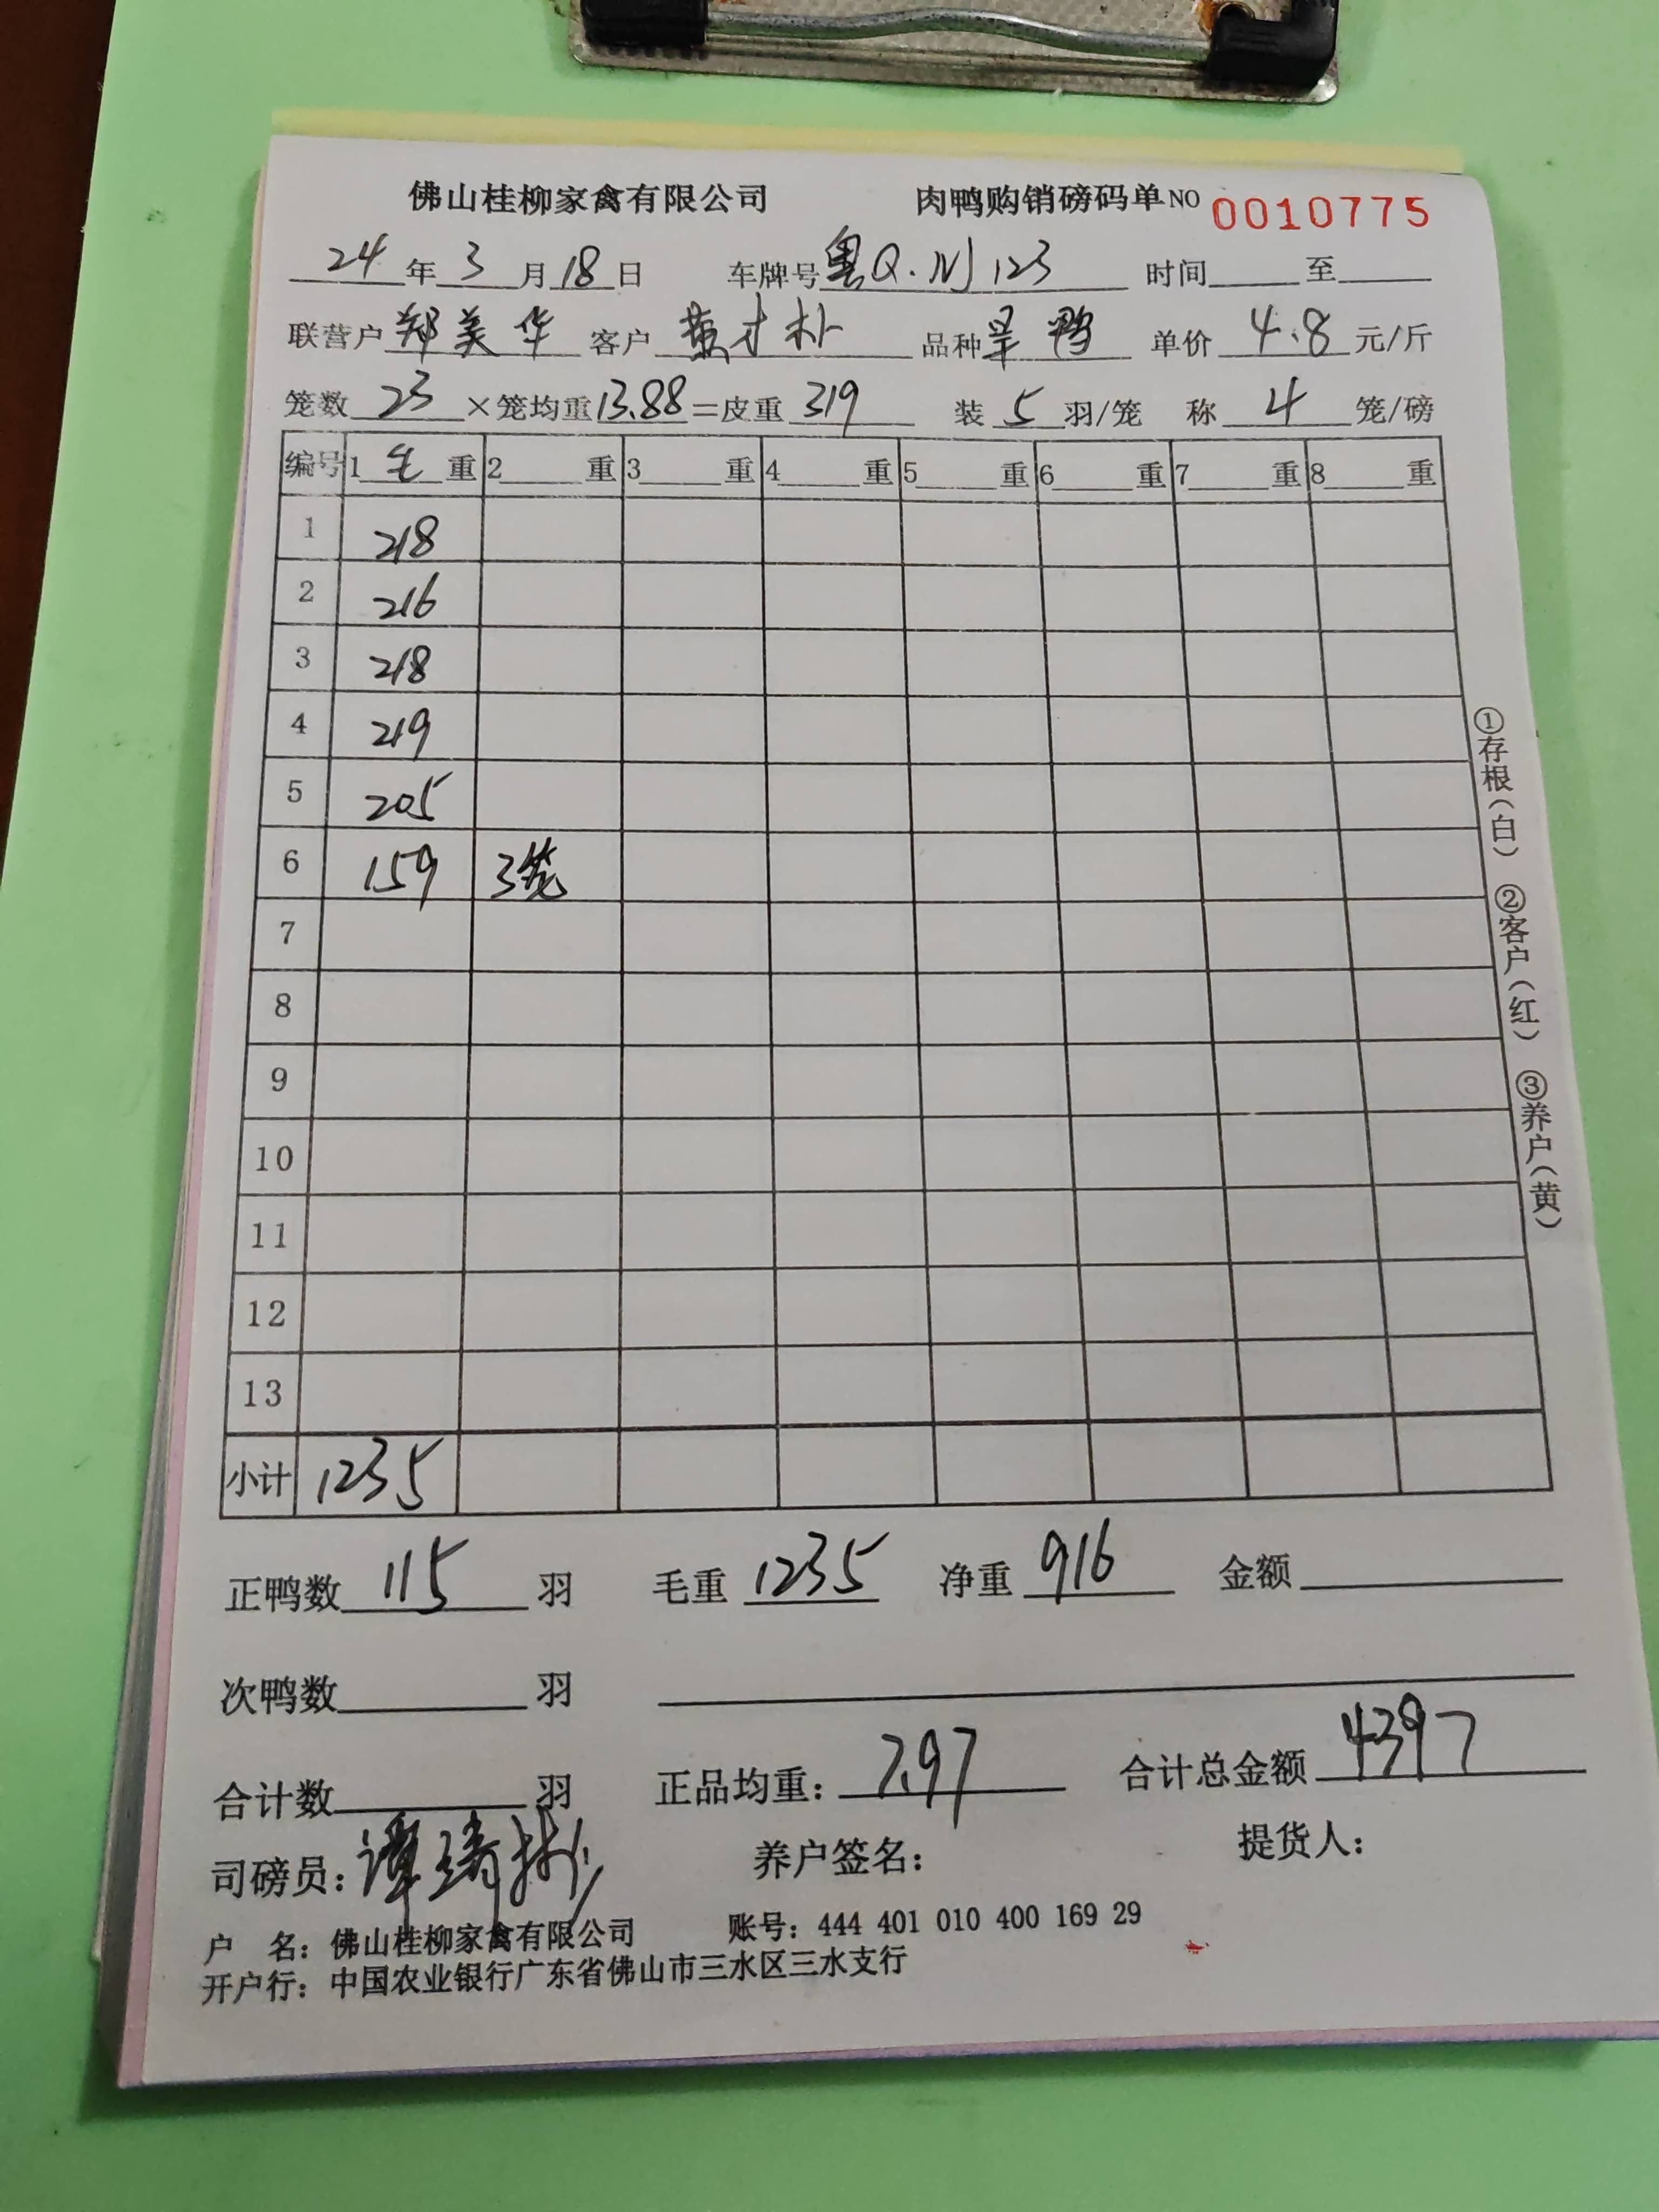 佛山桂柳家禽有限公司 肉鸭购销磅码单NO 0010775
24年3月18日 车牌号粤Q·NJ123 时间____至____
联营户郑美华 客户黄才朴 品种旱鸭 单价4.8元/斤
笼数23×笼均重13.88=皮重319 装5羽/笼 称4笼/磅
编号 1毛重 2____重 3____重 4____重 5____重 6____重 7____重 8____重
1 218
2 216
3 218
4 219
5 205
6 159 3笼
7
8
9
10
11
12
13
小计 1235
①存根(白) ②客户(红) ③养户(黄)
正鸭数115羽 毛重1235 净重916 金额____
次鸭数____羽
合计数____羽 正品均重:7.97 合计总金额4397
司磅员:谭 养户签名: 提货人:
户 名:佛山桂柳家禽有限公司 账号:444 401 010 400 169 29
开户行:中国农业银行广东省佛山市三水区三水支行